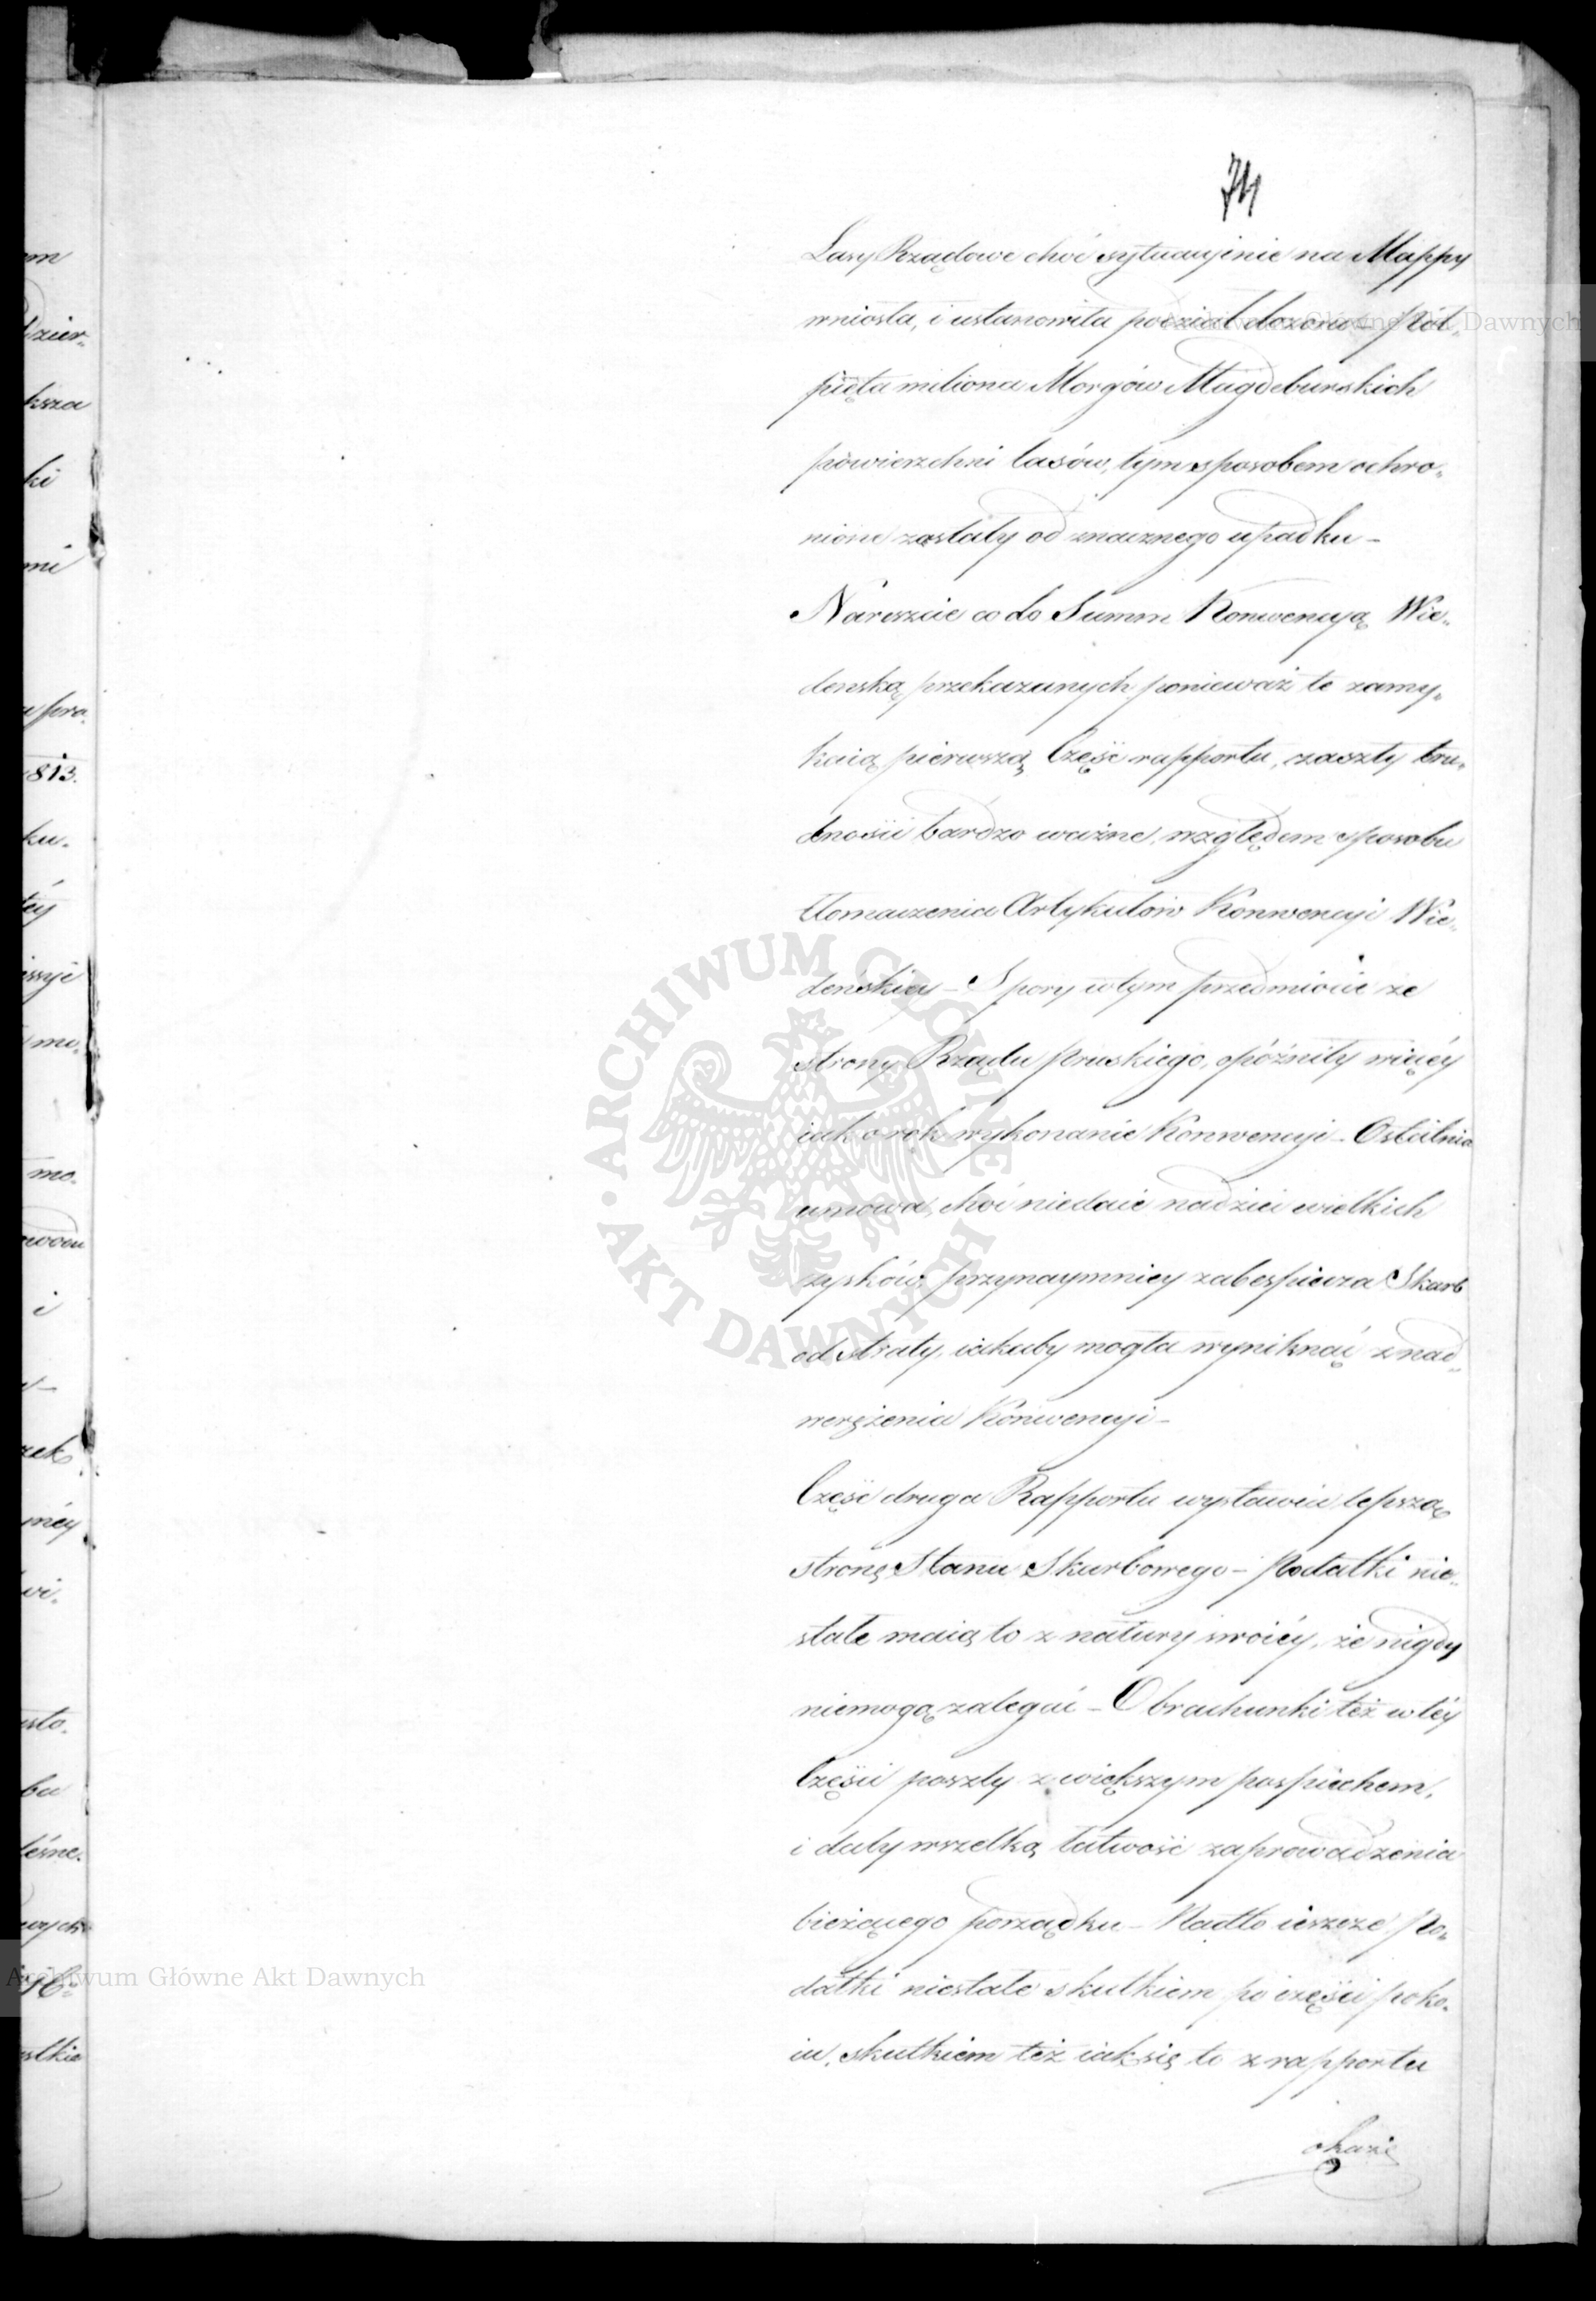 74
Lasy Rządowe choć sytuacyinie na Mappy
wniosła, i ustanowiła podział dozoru – Pół„
pięta miliona Morgów Magdeburskich
powierzchni lasów, tym sposobem ochro„
nione zostały od znacznego upadku –
Nareszcie co do Summ Konwencyą Wie„
denską przekazanych ponieważ te zamy„
kaią pierwszą Część rapportu, zaszły tru„
dności bardzo ważne, względem sposobu
tłomaczenia Artykułów Konwencyi Wie„
deńskiey – Spory w tym przedmiocie ze
strony Rządu Pruskiego, opóźniły więcéy
iak o rok wykonanie Konwencyi – Ostatnia
umowa, choć niedaie nadziei wielkich
zysków, przynaymniey zabespiecza Skarb
od straty, iakaby mogła wyniknąć z nad„
werężenia Konwencyi –
Część druga Rapportu wystawia lepszą
stronę Stanu Skarbowego – Podatki nie„
stałe maią to z natury swoiéy, że nigdy
niemogą zalegać – Obrachunki też w téy
Części poszły z większym pospiechem,
i dały wszelką łatwość zaprowadzenia
bieżącego porządku – Nadto ieszcze Po„
datki niestałe skutkiem po części poko„
iu, skutkiem też iak się to z rapportu
okaże
em
dzier„
ksza
ki
mi
813.
ku.
téy
mo.
i
zek
wi.
sto.
bu
leśne.
wych
stkie
Archiwum Główne Akt Dawnych
Archiwum Główne Akt Dawnych
ARCHIWUM GŁÓWNE
AKT DAWNYCH